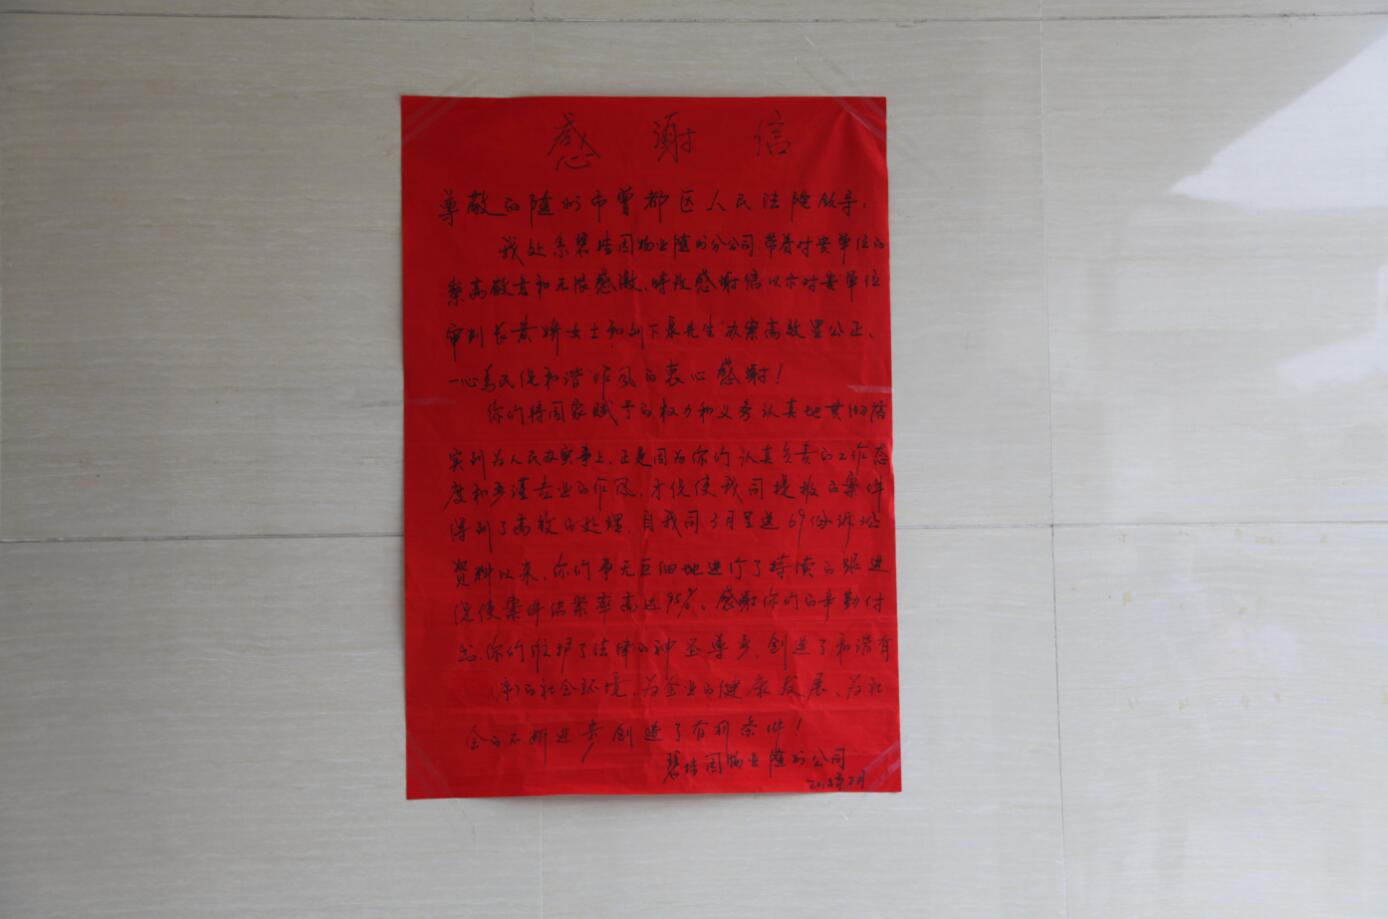 感谢信
尊敬的随州市曾都区人民法院领导:
我处系碧桂园物业随州分公司,带着对贵单位的
崇高敬意和无限感激,特致感谢信以示对贵单位
审判长黄娇女士和刘下泉先生办案高效严公正、
一心为民促和谐作风的衷心感谢!
你们将国家赋予的权力和义务认真地贯彻落
实到为人民办实事上,正是因为你们认真负责的工作态
度和严谨专业的作风,才促使我司提报的案件
得到了高效的处理,自我司3月呈送69份诉讼
资料以来,你们事无巨细地进行了持续的跟进
促使案件结案率高达95%,感谢你们的辛勤付
出,你们维护了法律的神圣尊严,创造了和谐有
序的社会环境,为企业的健康发展、为社
会的不断进步创造了有利条件!
碧桂园物业随州公司
2018年7月